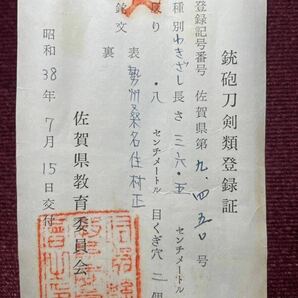 銃砲刀剣類登録証
登録記号番号 佐賀県第九、四五〇号
種別 わきざし 長さ 三六・五 センチメートル
反り ・八 センチメートル 目くぎ穴 二個
銘文 表 勢州桑名住村正
裏
昭和38年7月15日交付
佐賀県教育委員会